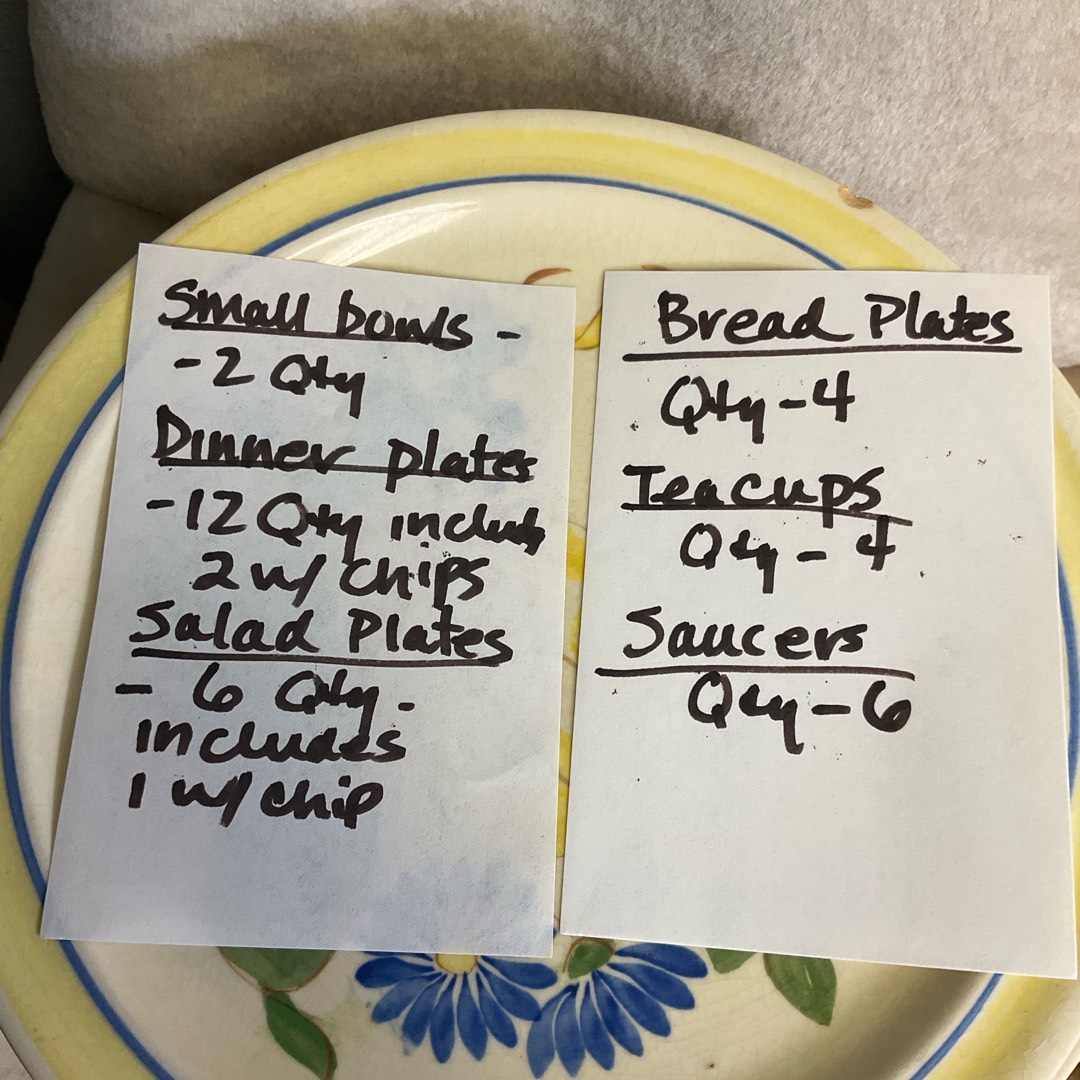 Small bowls -
- 2 Qty
Dinner plates
- 12 Qty includs
2 w/ chips
Salad Plates
- 6 Qty.
includes
1 w/ chip
Bread Plates
Qty - 4
Teacups
Qty - 4
Saucers
Qty - 6